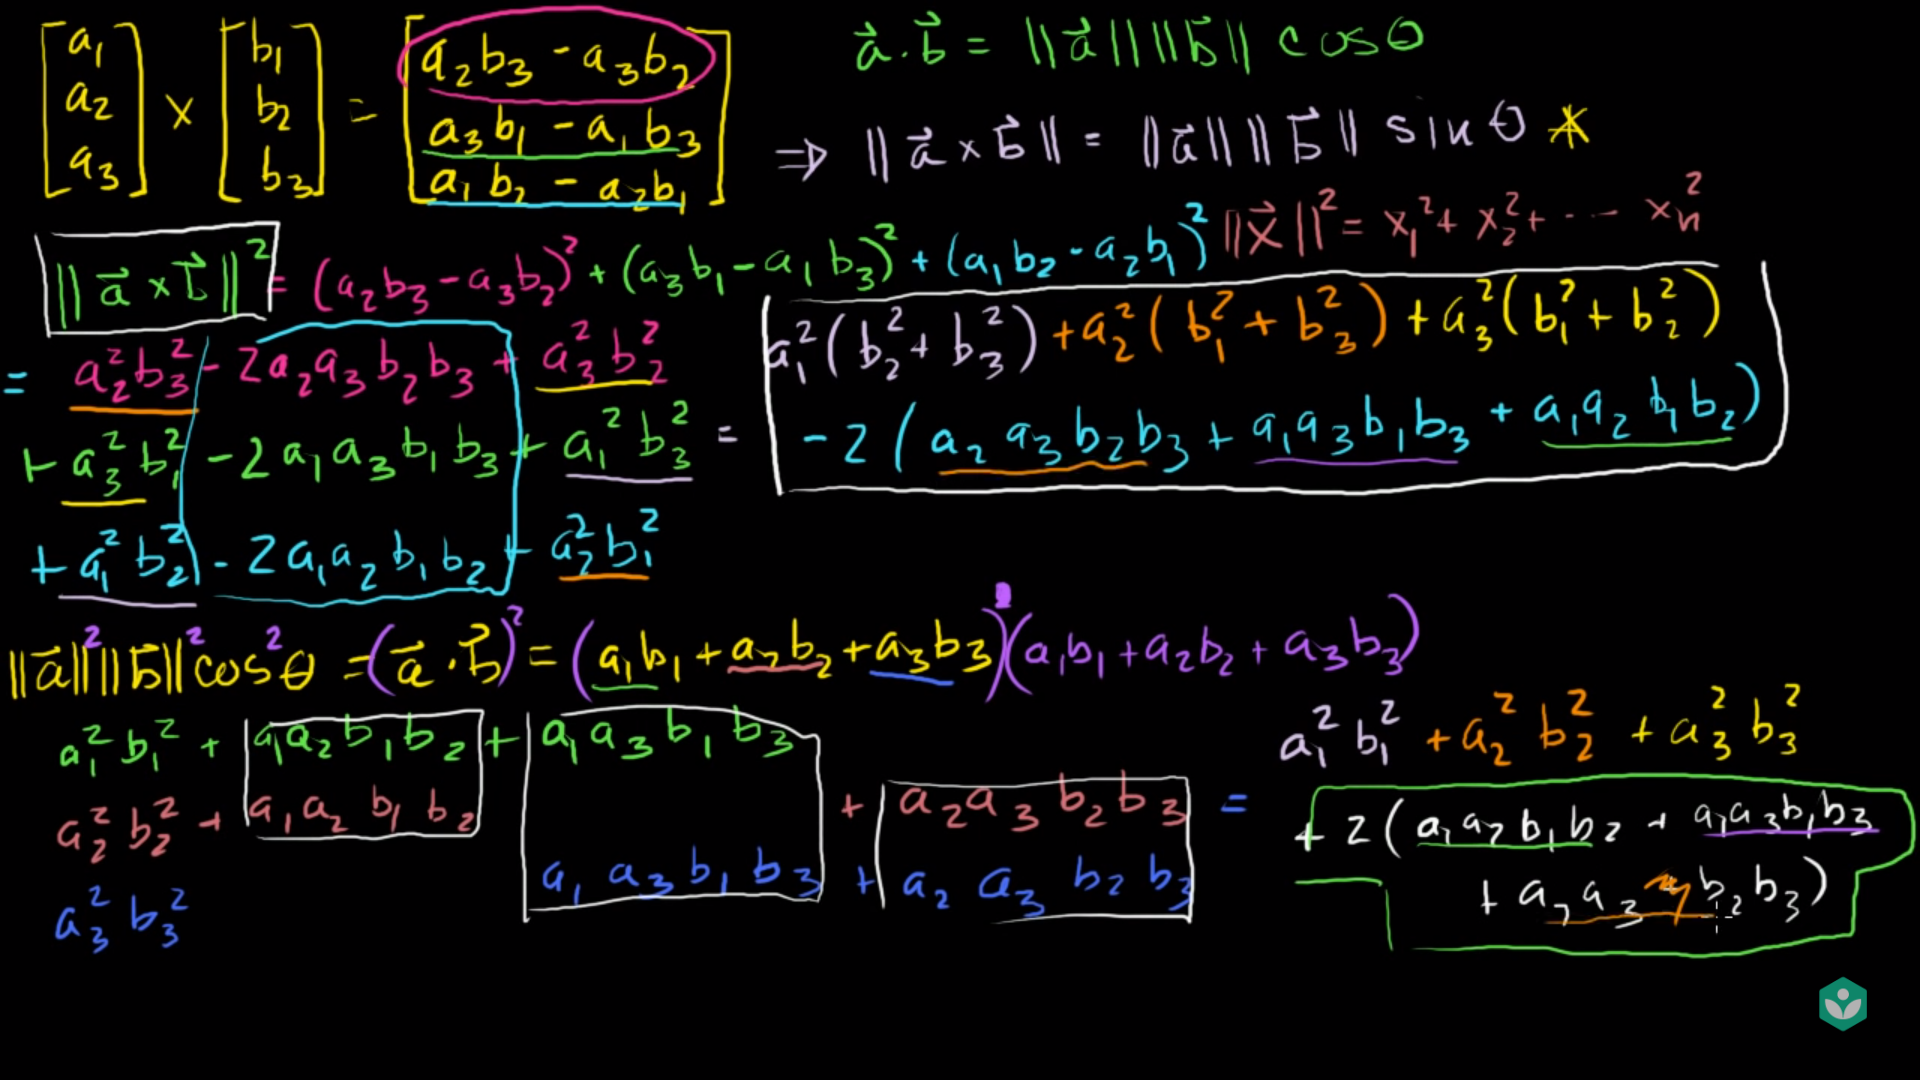 [a₁ a₂ a₃] × [b₁ b₂ b₃] = [a₂b₃ - a₃b₂
a₃b₁ - a₁b₃
a₁b₂ - a₂b₁]
a⃗ · b⃗ = ||a⃗|| ||b⃗|| cosθ
⇒ ||a⃗ × b⃗|| = ||a⃗|| ||b⃗|| sin θ *
||x⃗||² = x₁² + x₂² + ··· xₙ²
||a⃗ × b⃗||² = (a₂b₃ - a₃b₂)² + (a₃b₁ - a₁b₃)² + (a₁b₂ - a₂b₁)²
= a₂²b₃² - 2a₂a₃b₂b₃ + a₃²b₂²
+ a₃²b₁² - 2a₁a₃b₁b₃ + a₁²b₃² =
+ a₁²b₂² - 2a₁a₂b₁b₂ + a₂²b₁²
a₁²(b₂² + b₃²) + a₂²(b₁² + b₃²) + a₃²(b₁² + b₂²)
-2(a₂a₃b₂b₃ + a₁a₃b₁b₃ + a₁a₂b₁b₂)
||a⃗||²||b⃗||²cos²θ = (a⃗ · b⃗)² = (a₁b₁ + a₂b₂ + a₃b₃)(a₁b₁ + a₂b₂ + a₃b₃)
a₁²b₁² + a₁a₂b₁b₂ + a₁a₃b₁b₃
a₂²b₂² + a₁a₂b₁b₂ + a₂a₃b₂b₃ =
a₃²b₃² a₁a₃b₁b₃ + a₂a₃b₂b₃
a₁²b₁² + a₂²b₂² + a₃²b₃²
+ 2(a₁a₂b₁b₂ + a₁a₃b₁b₃
+ a₂a₃b₂b₃)